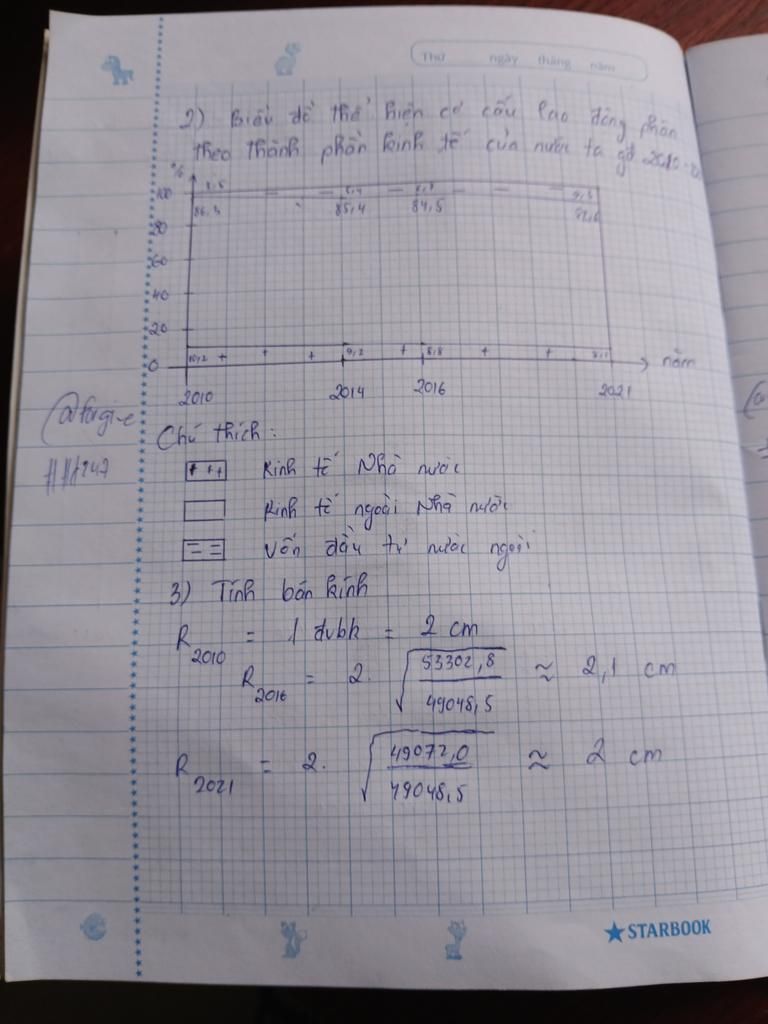 Thứ ngày tháng năm
2) Biểu đồ thể hiện cơ cấu lao động phân
theo thành phần kinh tế của nước ta gđ 2010-20
%
100
3,5 5,4 6,7 9,3
86,3 85,4 84,5 82,6
80
60
40
20
10,2 9,2 8,8 8,1
0
năm
2010 2014 2016 2021
Chú thích:
Kinh tế Nhà nước
Kinh tế ngoài Nhà nước
Vốn đầu tư nước ngoài
3) Tính bán kính
R2010 = 1 đvbk = 2 cm
R2016 = 2. √(53302,8 / 49048,5) ≈ 2,1 cm
R2021 = 2. √(49072,0 / 49048,5) ≈ 2 cm
★STARBOOK